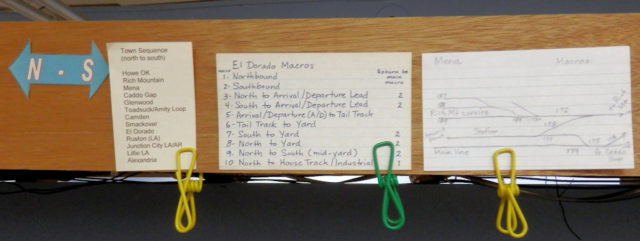 N - S
Town Sequence
(north to south)
Howe OK
Rich Mountain
Mena
Caddo Gap
Glenwood
Toadsuck/Amity Loop
Camden
Smackover
El Dorado
Ruston (LA)
Junction City LA/AR
Lillie LA
Alexandria
El Dorado Macros
Return to main macro
1- Northbound
2- Southbound
3- North to Arrival/Departure Lead 2
4- South to Arrival/Departure Lead 2
5- Arrival/Departure (A/D) to Tail Track
6- Tail Track to Yard
7- South to Yard 2
8- North to Yard 2
9- North to South (mid-yard) 2
10 North to House Track/Industrial 1
Mena Macros
Rich Mt service
172
Station
Main line